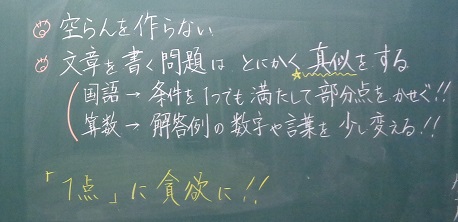 空らんを作らない
文章を書く問題は とにかく 真似をする
国語→条件を1つでも満たして部分点をかせぐ!!
算数→解答例の数字や言葉を少し変える!!
「1点」に貪欲に!!